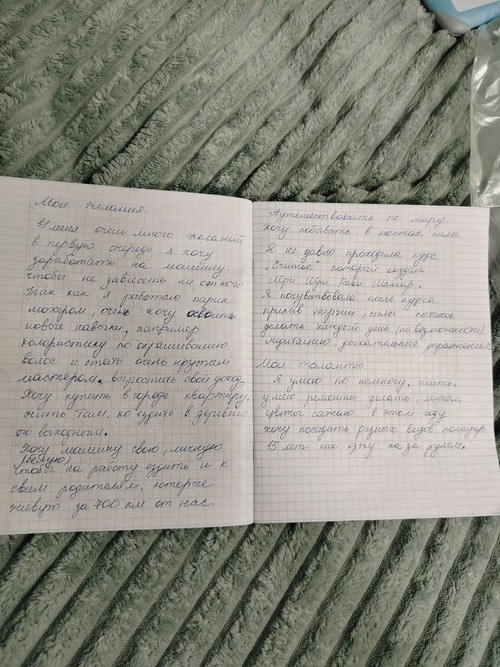 Мои желания.
У меня очень много желаний,
в первую очередь я хочу
заработать на машину.
чтобы не зависеть ни от кого
Так как я работаю парик
махером, очень хочу освоить
новые навыки, например
колористику по окрашиванию
волос и стать очень крутым
мастером, вырастить свой доход.
Хочу купить в городе квартиру.
жить там, но ездить в деревню
по выходным.
Хочу машину свою, личную
(белую)
чтобы на работу ездить и к
своим родителям, которые
живут за 700 км от нас.
Путешествовать по миру
хочу побывать в местах силы
Я не давно проходила курс
который создал
Шри Шри Рави Шанкар.
Я почувствовала после курса
прилив энергии, силы, пытаюсь
делать каждый день (по возможности)
медитацию, дыхательные упражнения.
Мои таланты
Я умею по немногу, шить.
умею ремонты делать, летом
цветы сажаю. в этом году
хочу посадить разных видов помидор
15 лет как езжу на за рулем.